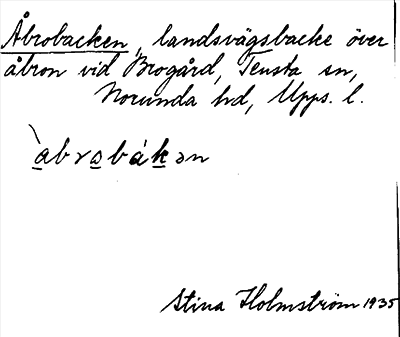 Åbrobacken, landsvägsbacke över
åbron vid Brogård, Tensta sn,
Norunda hd, Upps. l.
`abrobákən
Stina Holmström 1935